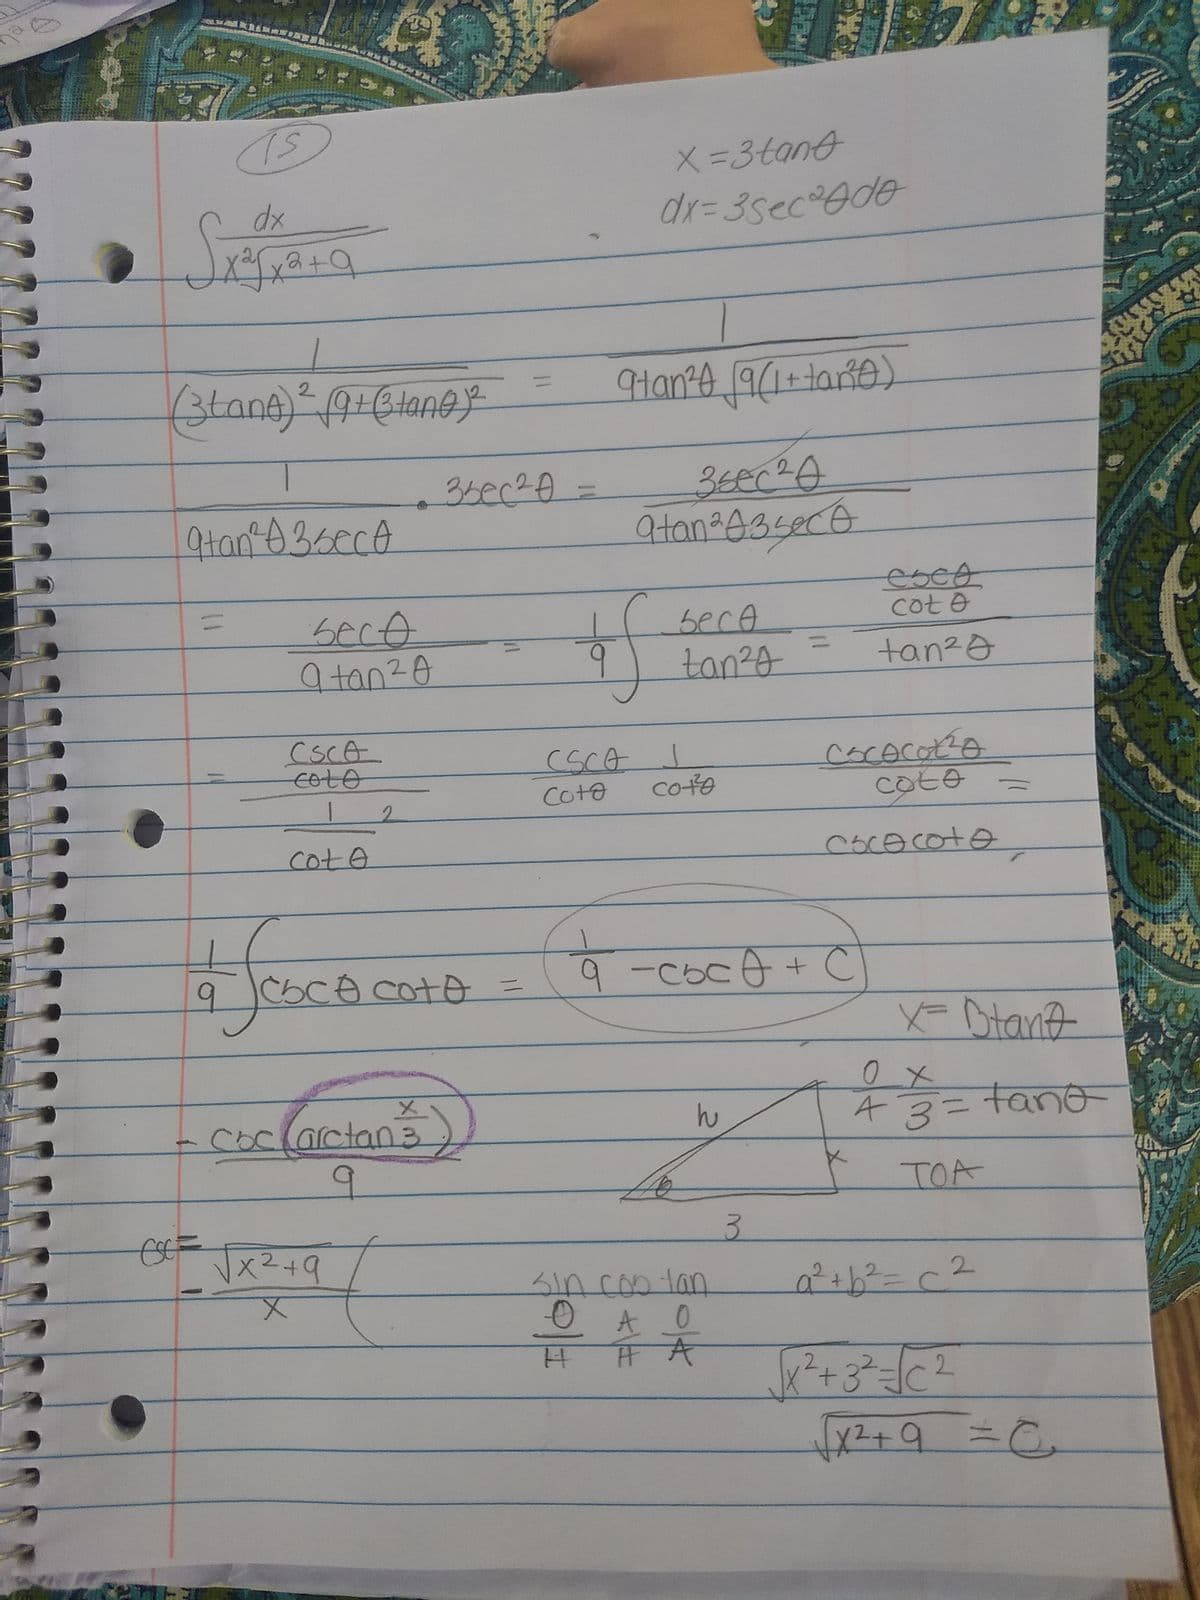 15
x = 3tanθ
dx = 3sec²θdθ
∫ dx / x²√x²+9
1 / (3tanθ)² √9+(3tanθ)² = 1 / 9tan²θ √9(1+tan²θ)
1 / 9tan²θ3secθ · 3sec²θ = 3sec²θ / 9tan²θ3secθ
= secθ / 9tan²θ = 1/9 ∫ secθ / tan²θ = cscθ / cotθ / tan²θ
= cscθ / cotθ / 1 / cotθ 2 cscθ / cotθ 1 / cot²θ cscθcot²θ / cotθ =
cscθcotθ
1/9 ∫cscθcotθ = 1/9 -cscθ + C
x = 3tanθ
O/A x/3 = tanθ
- csc(arctan x/3) / 9
h
x
θ
3
TOA
csc = - √x²+9 / x (
sin cos tan
O/H A/H O/A
a²+b²=c²
√x²+3²=√c²
√x²+9 = c